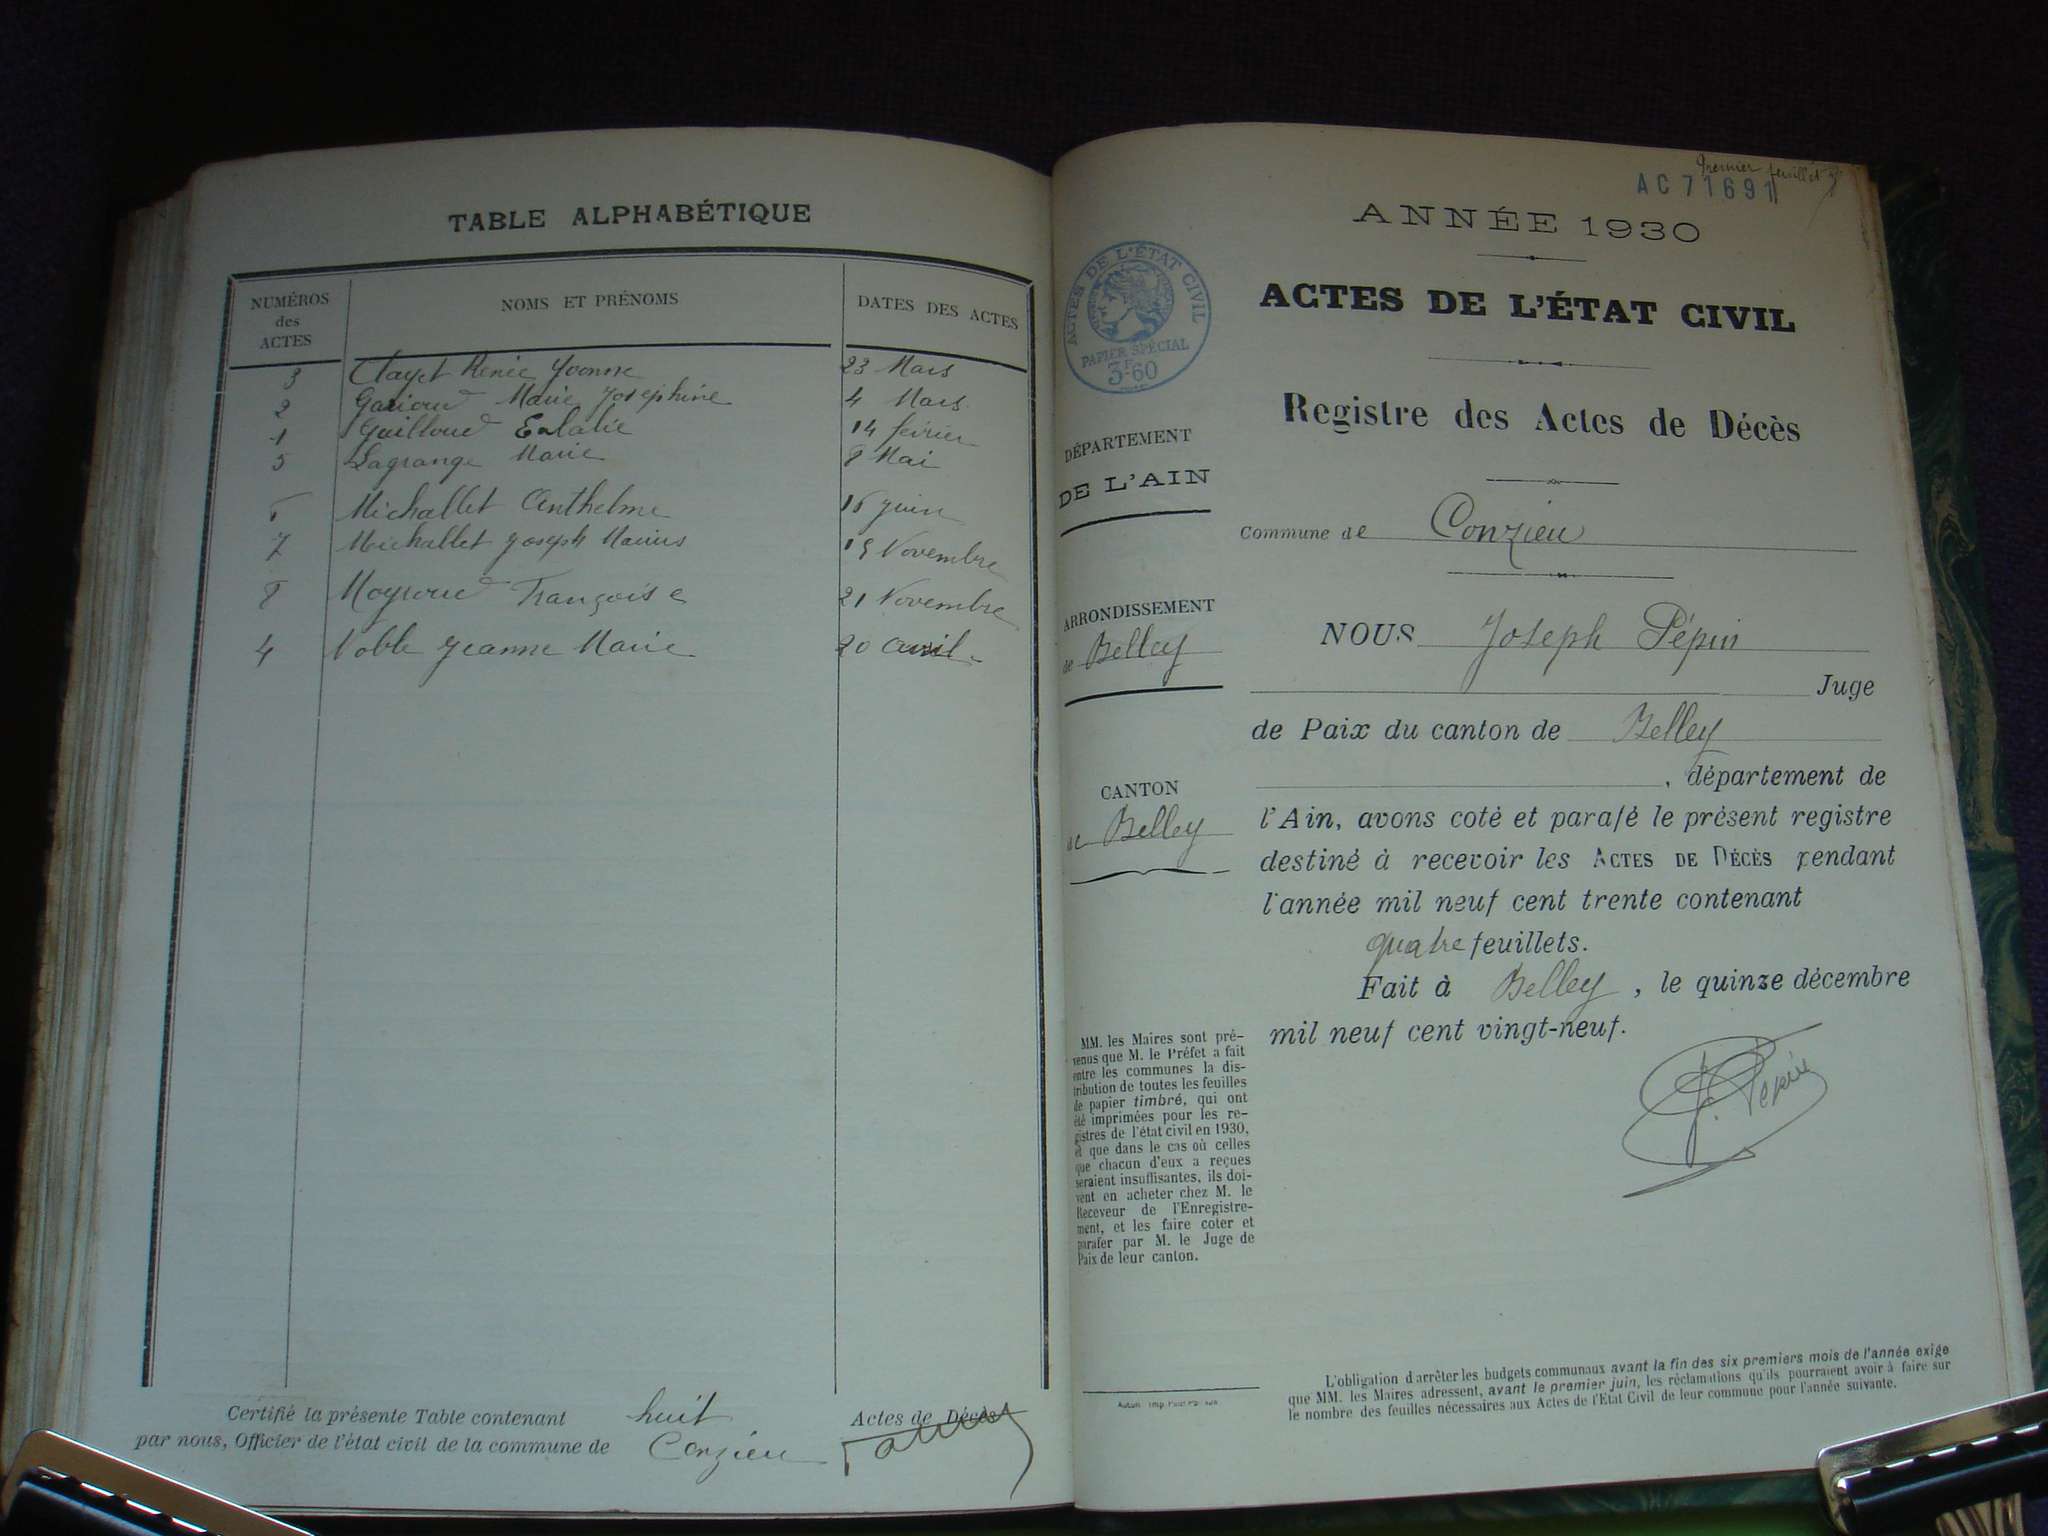 TABLE ALPHABÉTIQUE
NUMÉROS des ACTES
NOMS ET PRÉNOMS
DATES DES ACTES
3 Clayet Renée Yvonne 23 Mars
2 Marie Josephine 4 Mars
1 Guilloud Eulalie 14 février
5 Lagrange Marie 8 Mai
6 Michallet Anthelme 16 juin
7 Michallet Joseph Marius 19 Novembre
8 Moyroud Françoise 21 Novembre
4 Noble Jeanne Marie 20 avril
Certifié la présente Table contenant huit Actes de Décès
par nous, Officier de l'état civil de la commune de Conzieu
Premier feuillet
AC 71691
ANNÉE 1930
ACTES DE L'ÉTAT CIVIL
PAPIER SPÉCIAL
3F60
ACTES DE L'ÉTAT CIVIL
Registre des Actes de Décès
DÉPARTEMENT
DE L'AIN
Commune de Conzieu
ARRONDISSEMENT
de Belley
CANTON
de Belley
NOUS Joseph Pépin
Juge
de Paix du canton de Belley
, département de
l'Ain, avons coté et parafé le présent registre
destiné à recevoir les ACTES DE DÉCÈS pendant
l'année mil neuf cent trente contenant
quatre feuillets.
Fait à Belley, le quinze décembre
mil neuf cent vingt-neuf.
J. Pépin
MM. les Maires sont pré-
venus que M. le Préfet a fait
entre les communes la dis-
tribution de toutes les feuilles
de papier timbré, qui ont
été imprimées pour les re-
gistres de l'état civil en 1930,
et que dans le cas où celles
que chacun d'eux a reçues
seraient insuffisantes, ils doi-
vent en acheter chez M. le
Receveur de l'Enregistre-
ment, et les faire coter et
parafer par M. le Juge de
Paix de leur canton.
Autun Imp.
L'obligation d'arrêter les budgets communaux avant la fin des six premiers mois de l'année exige
que MM. les Maires adressent, avant le premier juin, les réclamations qu'ils pourraient avoir à faire sur
le nombre des feuilles nécessaires aux Actes de l'Etat Civil de leur commune pour l'année suivante.